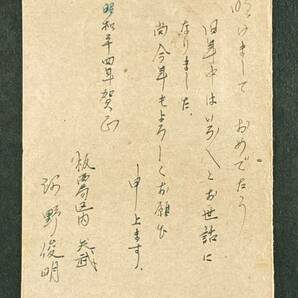 明けまして おめでたう
旧年中はいろ〱とお世話に
なりました
尚今年もよろしくお願ひ
申上ます
昭和十四年賀正
板西局区内 矢武
河野俊明